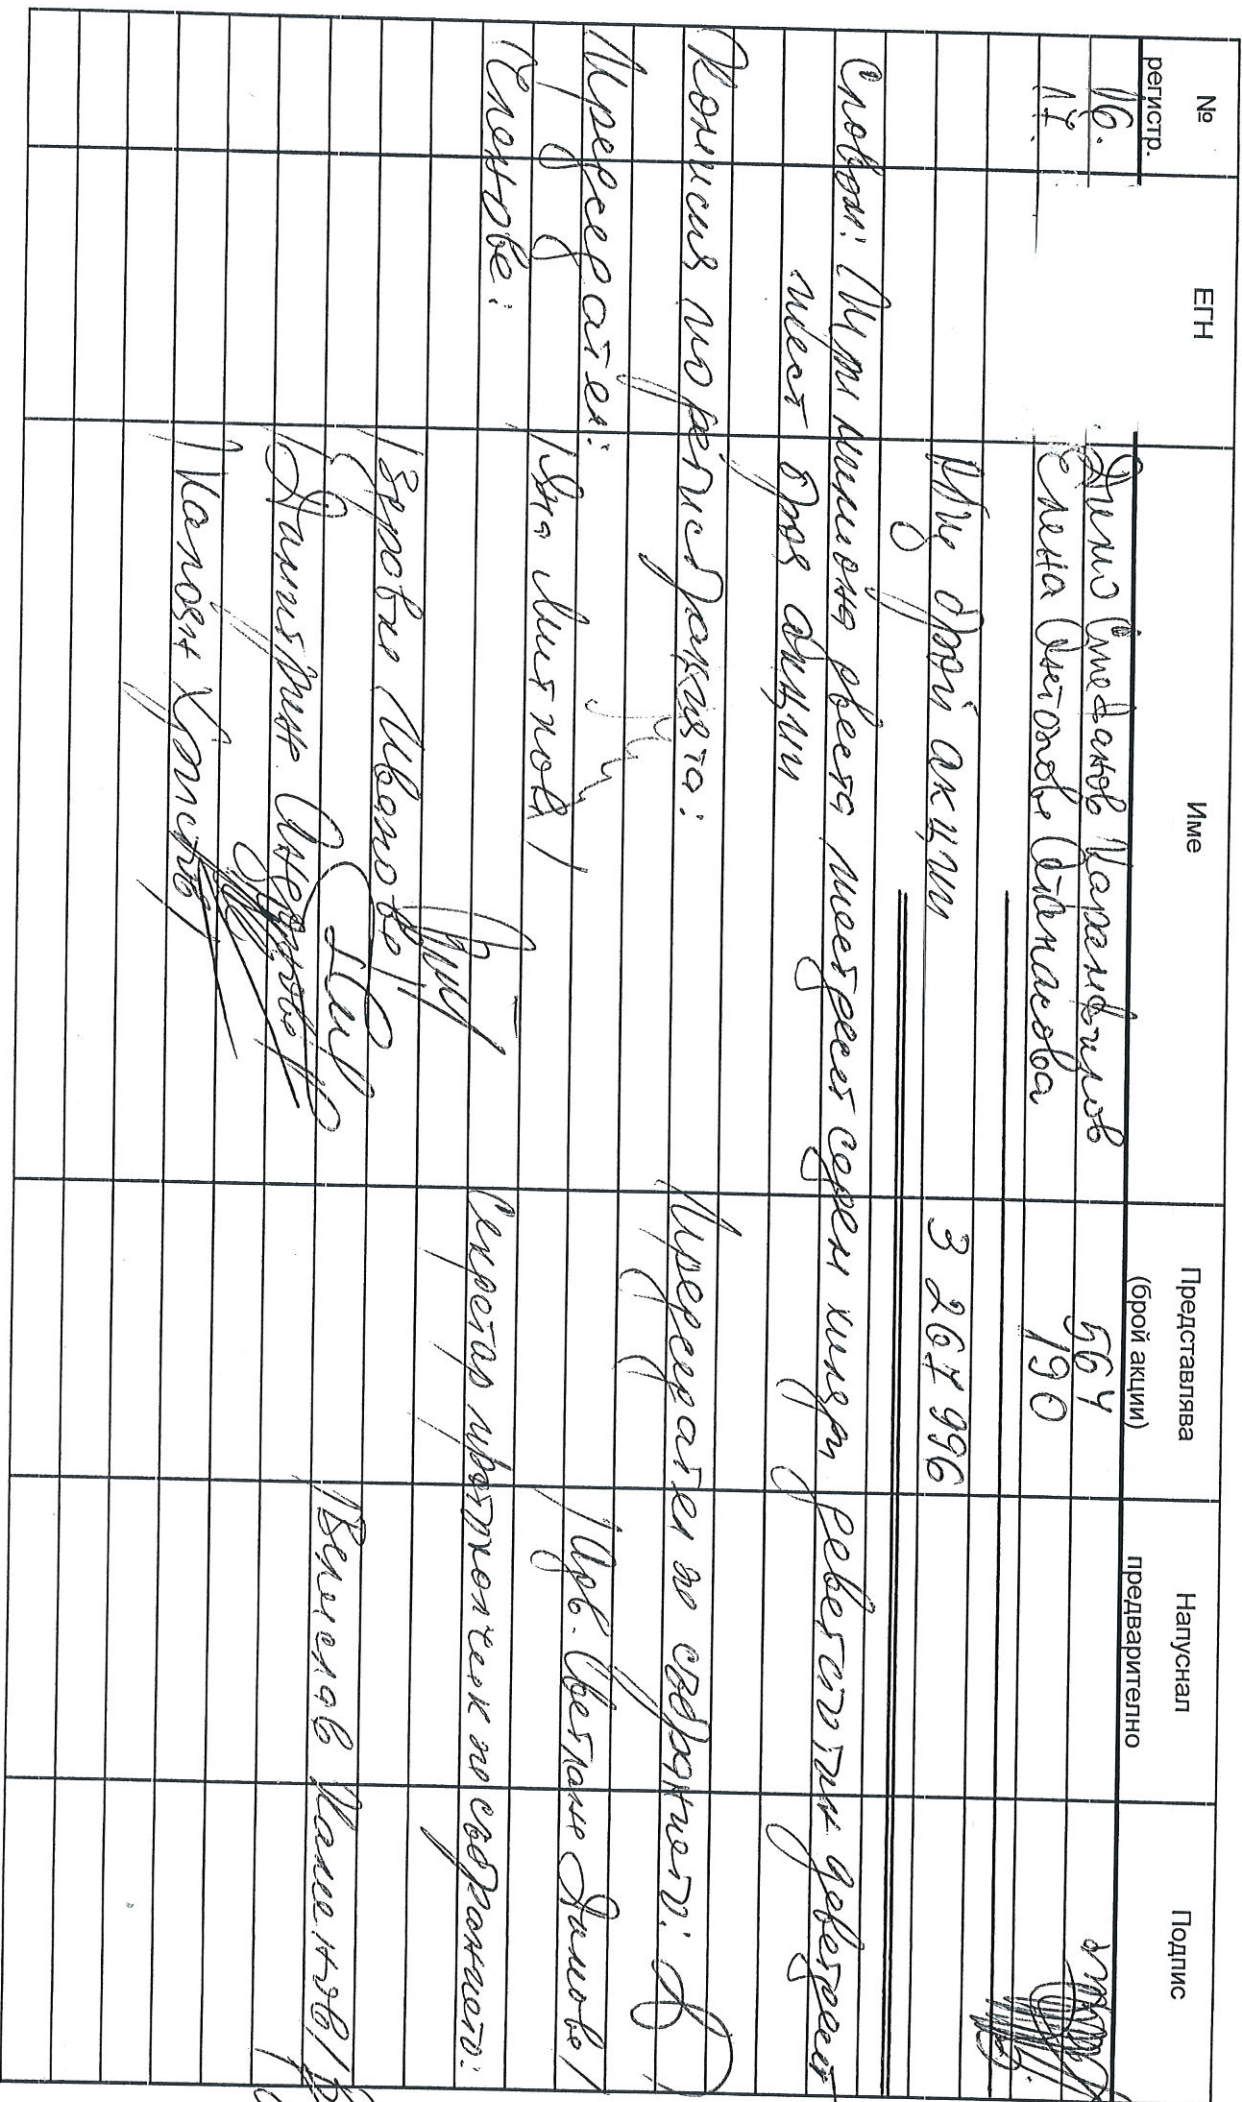 № регистр. ЕГН Име Представлява (брой акции) Напуснал предварително Подпис
16. Димо Стефанов Карамфилов 564
17. Елена Антонова Атанасова 190
общ брой акции 3 267 996
Словом: Три милиона двеста шестдесет и седем хиляди деветстотин деветдесет
и шест броя акции
Комисия по регистрацията: Председател на събранието:
Председател:
/Яна Миткова/ /Адв. Светлана Димова/
Членове: Секретар протоколчик на събранието:
/Здравка Иванова/
/Димитрина Андреева/ /Венелав Каменов/
/Калоян Христов/